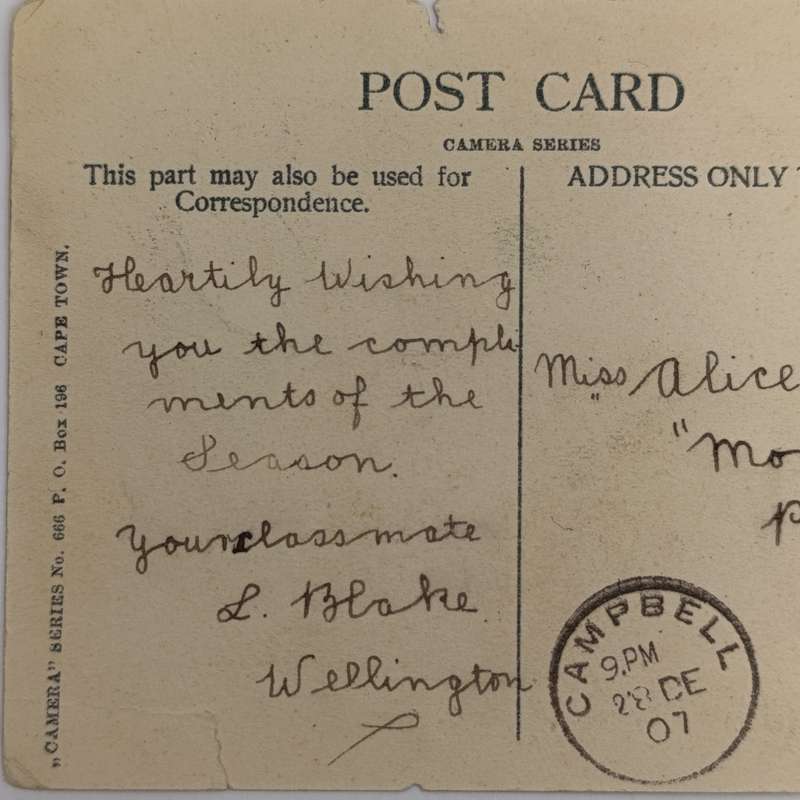 POST CARD
CAMERA SERIES
This part may also be used for
Correspondence.
ADDRESS ONLY
„CAMERA" SERIES No. 666 P. O. Box 196 CAPE TOWN.
Heartily Wishing
you the compli
ments of the
Season.
Your classmate
L. Blake
Wellington
Miss Alice
"Mo
P
CAMPBELL
9.PM
28 DE
07